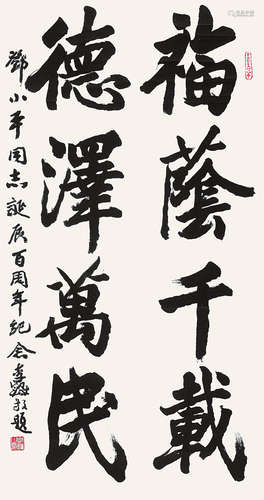 福蔭千載
德澤萬民
鄧小平同志誕辰百周年紀念
敬題